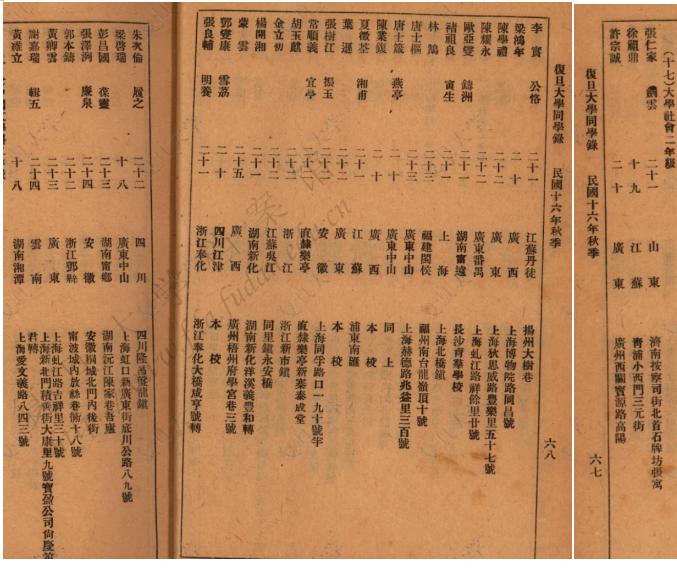 (十七)大學社會二年級
張仁家 雲 二十一 山東 濟南按察司街北首石牌坊張寓
徐祖鼎 十九 江蘇 青浦小西門三元街
許宗誠 二十 廣東 廣州西關寶源路高陽
復旦大學同學錄 民國十六年秋季 六七
復旦大學同學錄 民國十六年秋季 六八
李實 公恪 二十一 江蘇丹徒 揚州大樹巷
梁鴻年 二十 廣西 上海博物院路同昌號
陳學禮 二十二 廣東 上海狄思威路豐樂里五十七號
陳耀永 二十二 廣東番禺 上海虬江路祥餘里廿號
歐亞雙 鑄洲 二十一 湖南甯遠 長沙青華學校
褚祖良 寅生 二十 上海 上海北橋鎮
林鵠 二十三 福建閩侯 福州南台龍嶺頂十號
唐士樞 二十三 廣東中山 上海赫德路兆益里三百號
唐士箴 燕亭 二十 廣東中山 同上
陳業馥 二十 廣西 本校
夏徵荃 湘甫 二十一 江蘇 浦東南匯
葉遲 二十二 廣東 本校
張樹江 振玉 二十一 安徽 上海同孚路口一九十號半
常順義 宜學 二十二 直隸樂亭 直隸樂亭新寨泰成堂
胡玉麒 二十二 浙江 浙江新市鎮
金立初 二十二 江蘇吳江 同里鎮永安橋
楊開湘 二十一 湖南新化 湖南新化洋溪義豐和轉
蒙雲 二十五 廣西 廣州梧州府學宮巷三號
郭燮康 雲荔 二十一 四川江津 本校
張良輔 明養 二十一 浙江奉化 浙江奉化大橋咸亨號轉
朱次倫 履之 二十二 四川 四川隆昌龍鎮
梁啓瑞 十八 廣東中山 上海虹口新廣東街底川公路八九號
彭昌國 葆靈 二十三 湖南甯鄉 湖南沅江陳家巷吾廬
張澤洌 廉泉 二十四 安徽 安徽桐城北門內後街
郭本鑄 二十二 浙江鄞縣 甯波城內放絲巷衖十八號
黃卿雲 二十三 廣東 上海虬江路吉祥里三十號
謝嘉瑞 輯五 二十四 雲南 上海新北門積善街大康里九號寶盈公司尙慶第君轉
黃維立 十八 湖南湘潭 上海愛文義路八四三號